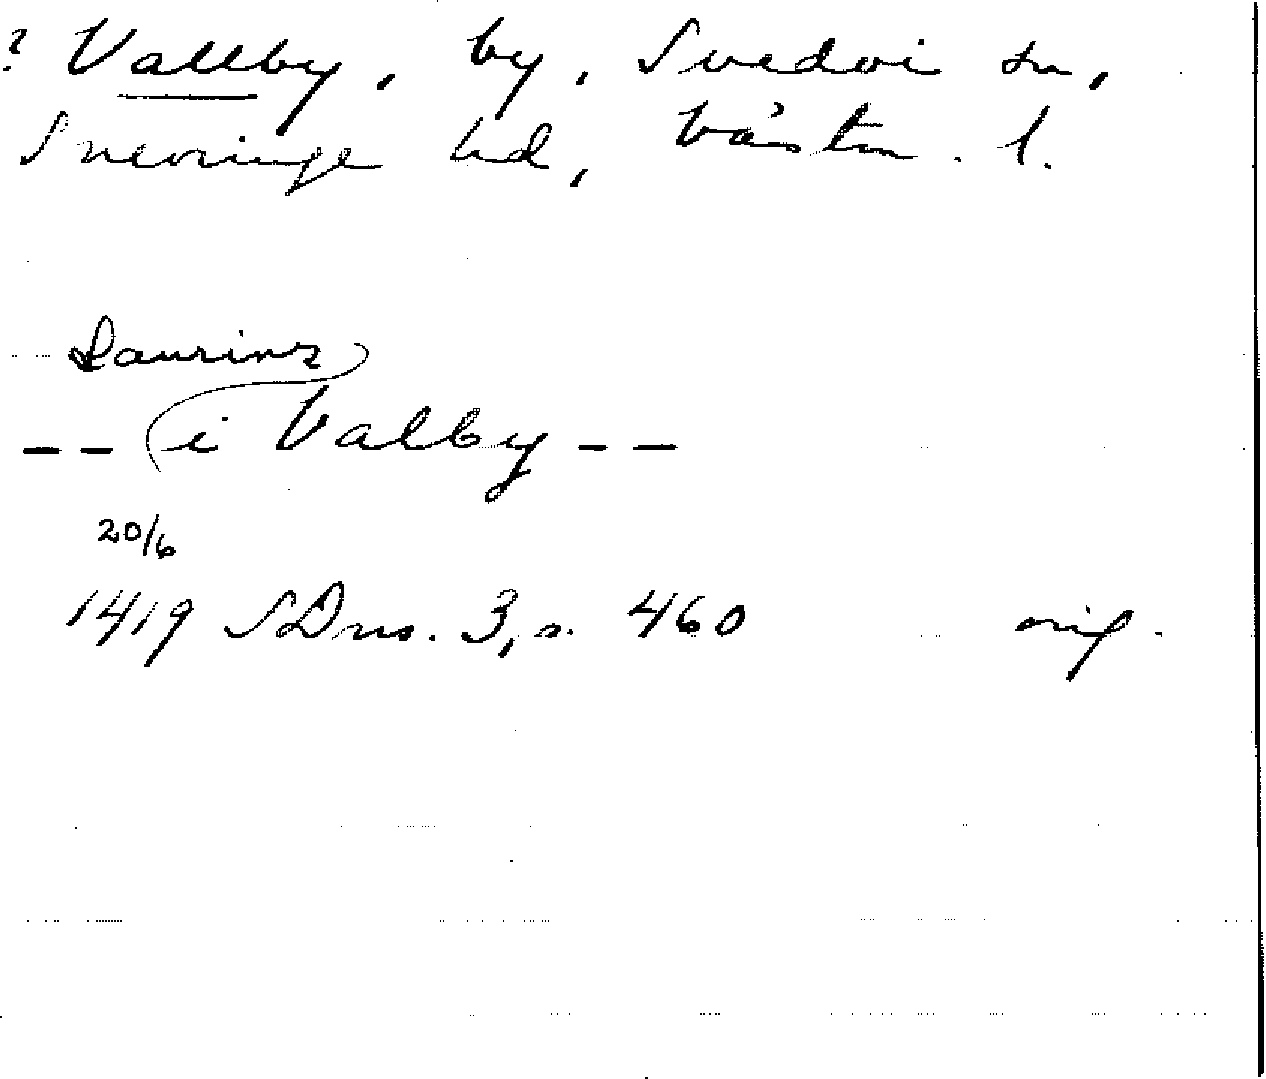 ? Vallby, by, Svedvi sn,
Snevringe hd, Västm. l.
Laurinz
-- i Valby --
20/6
1419 SDns. 3, s. 460 orig.